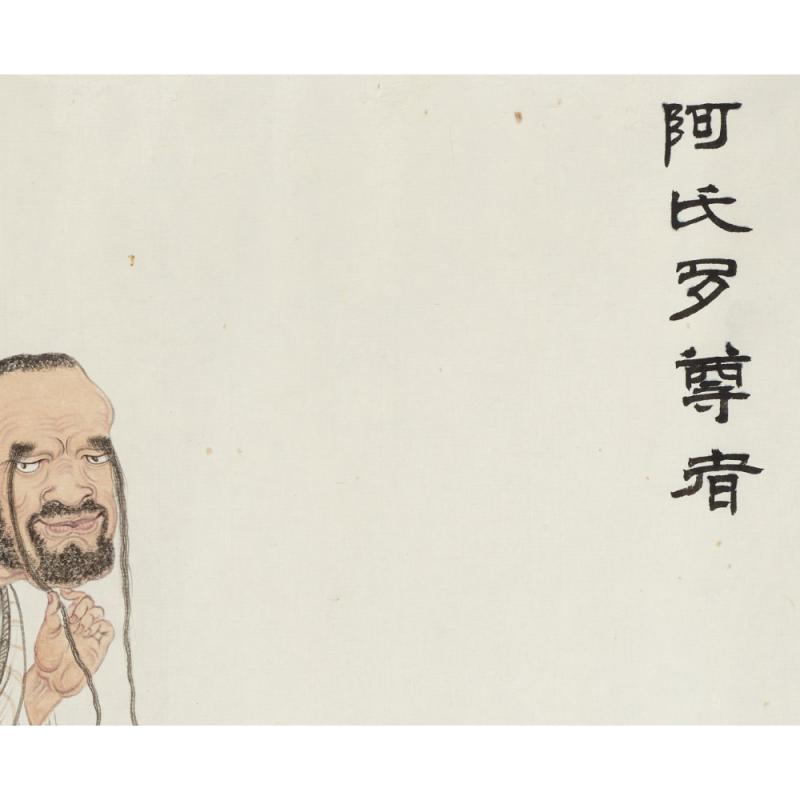 阿氏多尊者